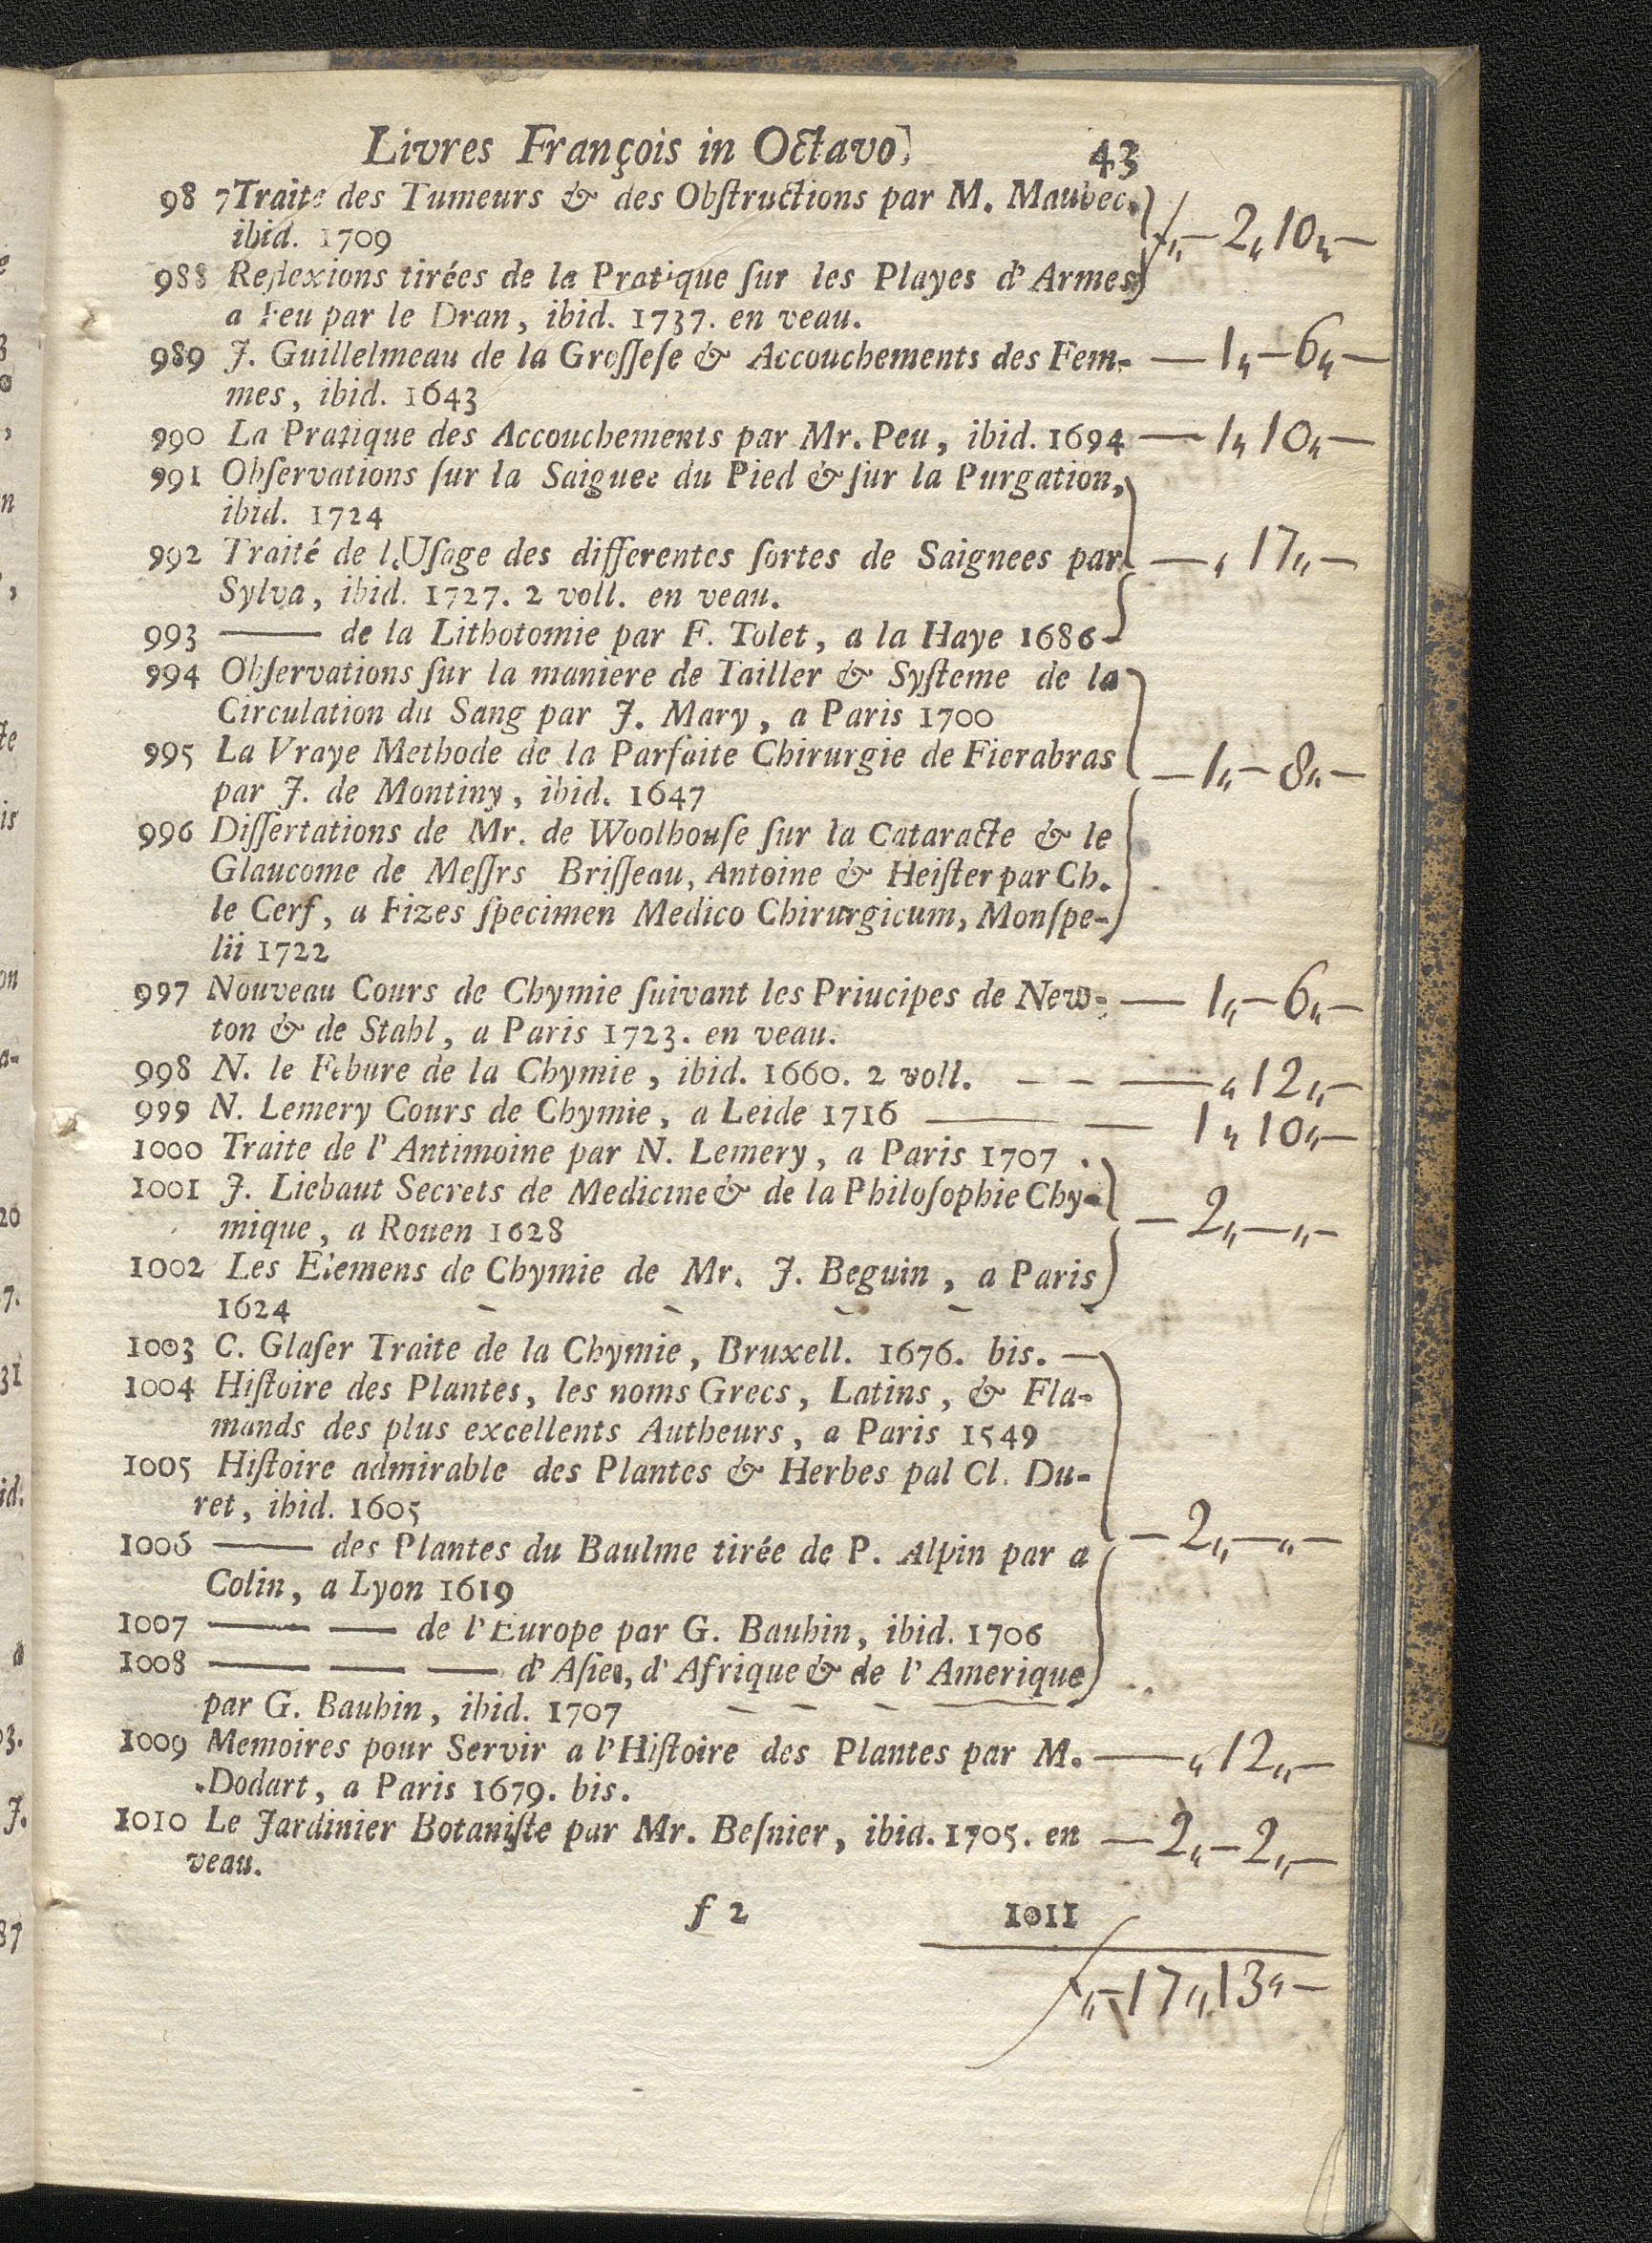 Livres François in Octavo. 43
98 7Traite des Tumeurs & des Obſtructions par M. Maubec. ƒ„—2„10„—
ibid. 1709
988 Reflexions tirées de la Pratique ſur les Playes d'Armes
a Feu par le Dran, ibid. 1737. en veau.
989 J. Guillelmeau de la Groſſeſe & Accouchements des Fem- —1„—6„—
mes, ibid. 1643
990 La Pratique des Accouchements par Mr. Peu, ibid. 1694 —1„10„—
991 Obſervations ſur la Saiguee du Pied & ſur la Purgation,
ibid. 1724
992 Traité de l'Uſage des differentes ſortes de Saignees par —„17„—
Sylva, ibid. 1727. 2 voll. en veau.
993 —— de la Lithotomie par F. Tolet, a la Haye 1686
994 Obſervations ſur la maniere de Tailler & Syſteme de la
Circulation du Sang par J. Mary, a Paris 1700
995 La Vraye Methode de la Parfaite Chirurgie de Fierabras —1„—8„—
par J. de Montiny, ibid. 1647
996 Diſſertations de Mr. de Woolhouſe ſur la Cataracte & le
Glaucome de Meſſrs Briſſeau, Antoine & Heiſter par Ch.
le Cerf, a Fizes ſpecimen Medico Chirurgicum, Monſpe-
lii 1722
997 Nouveau Cours de Chymie ſuivant les Priucipes de New- —1„—6„—
ton & de Stahl, a Paris 1723. en veau.
998 N. le Febure de la Chymie, ibid. 1660. 2 voll. — — —„12„—
999 N. Lemery Cours de Chymie, a Leide 1716 — — 1„10„—
1000 Traite de l'Antimoine par N. Lemery, a Paris 1707 .
1001 J. Liebaut Secrets de Medicine & de la Philoſophie Chy- —2„—„—
mique, a Rouen 1628
1002 Les Elemens de Chymie de Mr. J. Beguin, a Paris
1624
1003 C. Glaſer Traite de la Chymie, Bruxell. 1676. bis. —
1004 Hiſtoire des Plantes, les noms Grecs, Latins, & Fla-
mands des plus excellents Autheurs, a Paris 1549
1005 Hiſtoire admirable des Plantes & Herbes pal Cl. Du-
ret, ibid. 1605
1006 —— des Plantes du Baulme tirée de P. Alpin par a —2„—„—
Colin, a Lyon 1619
1007 —— —— de l'Europe par G. Bauhin, ibid. 1706
1008 —— —— —— d'Aſie, d'Afrique & de l'Amerique
par G. Bauhin, ibid. 1707
1009 Memoires pour Servir a l'Hiſtoire des Plantes par M. —„12„—
Dodart, a Paris 1679. bis.
1010 Le Jardinier Botaniſte par Mr. Beſnier, ibid. 1705. en —2„—2„—
veau.
f 2 1011
ƒ„—17„13„—